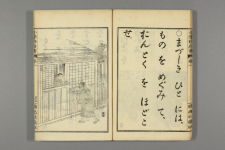 ○まづしき ひと には、
ものを めぐみ て、
おんとく を ほどこ
せ